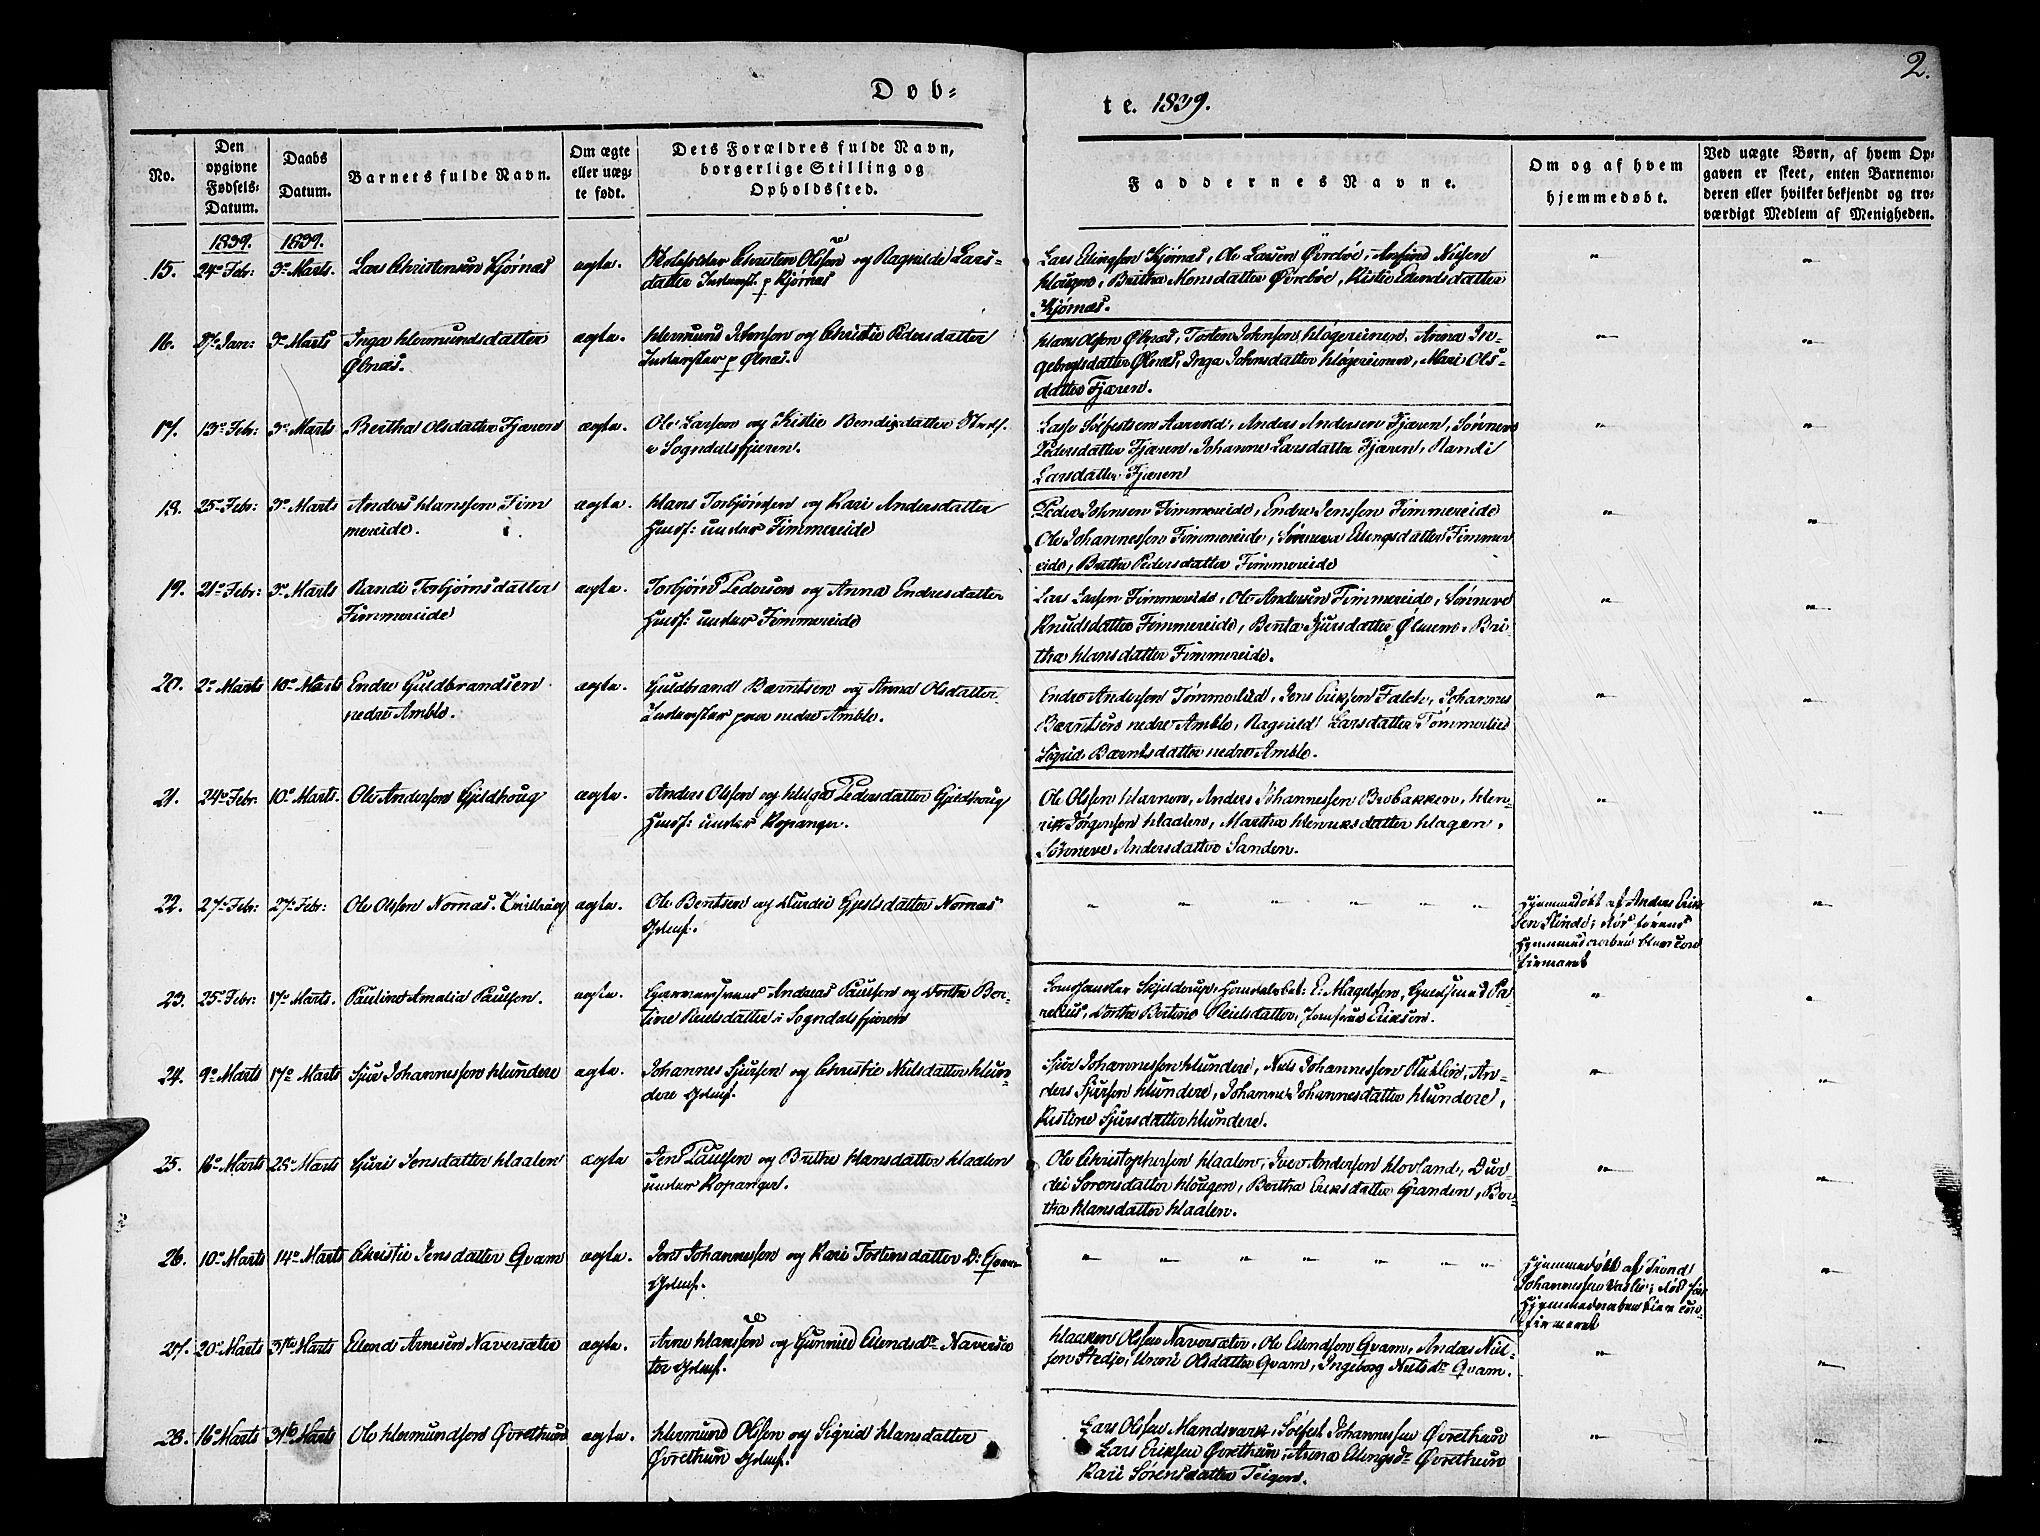 2.
Døb-
te. 1839.
No.
Den
opgivne
Fødsels-
Datum.
Daabs
Datum.
Barnets fulde Navn.
Om ægte
eller uæg-
te født.
Dets Forældres fulde Navn,
borgerlige Stilling og
Opholdssted.
Faddernes Navne.
Om og af hvem
hjemmedøbt.
Ved uægte Børn, af hvem Op-
gaven er skeet, enten Barnemo-
deren eller hvilket bekjendt og tro-
værdigt Medlem af Menigheden.
1839. 1839.
15. 24de Febr: 3die Marts. Lars Christensen Kjørnæs ægte. Christen Olsen og Ragnilde Lars-
datter Inderst. p Kjørnæs
Lars Ellingsen Kjørnæs, Ole Larsen Øvrebøe, Ansfind Nilsen
Hougen, Brithe Monsdatter Øvrebøe, Kistie Erlendsdatter
Kjørnæs.
16. Jan: 3die Marts Inga Hermundsdatter
Ølnæs. ægte. Hermund Iversen og Christie Pedersdatter
Inderster p Ølnæs.
Hans Olsen Ølnæs, Torsten Johnsen Høgereinen, Anna In-
gebrigtsdatter Ølnæs, Inga Johnsdatter Høgereinen, Mari Ols-
datter Fjæren.
17. 13de Febr: 3die Marts Bertha Olsdatter Fjæren ægte. Ole Larsen og Kistie Bendixdatter
i Sogndalsfjæren.
Lasse Solfestsen Aarvold, Anders Andersen Fjæren, Sønneva
Pedersdatter Fjæren, Johanne Larsdatter Fjæren, Randi
Larsdatter Fjæren
18. 25de Febr: 3die Marts Anders Hansen Fim
mereide. ægte. Hans Torbjørnsen og Kari Andersdatter
Husf: under Fimmereide
Peder Johnsen Fimmereide, Endre Jenssen Fimmereide
Ole Johannessen Fimmereide, Sønneva Ellingsdatter Fimmer
eide, Brithe Pedersdatter Fimmereide
19. 21de Febr: 3die Marts Randi Torbjørnsdatter
Fimmereide ægte. Torbjørn Pedersen og Anna Endresdatter
Husf: under Fimmereide
Lars Larsen Fimmereide, Ole Andersen Fimmereide, Sønneve
Knudsdatter Fimmereide, Benta Sjursdatter Ølmem, Bri-
tha Hansdatter Fimmereide.
20. 2den Marts 10de Marts Endre Guldbrandsen
nedre Amble. ægte. Guldbrand Bærntsen og Anna Olsdatter
Inderster paa nedre Amble.
Endre Andersen Tømmerlid, Jens Eriksen Faleh, Johannes
Bærntsen nedre Amble, Ragnild Larsdatter Tømmerlid
Sigrid Bærntsdatter nedre Amble.
21. 24de Febr. 10de Marts. Ole Andersen Gjeldhoug ægte. Anders Olsson og Helga Pedersdatter Gjeldhoug
Husf: under Kopanger.
Ole Olsson Hamren, Anders Johannessen Brobakken, Hen-
rik Jørgensen Haalen, Martha Henriksdatter Hagen,
Sønneve Andersdatter Sanden.
22. 27de Febr: 27de Febr: Ole Olsson Nornæs. Tvilling ægte. Ole Bentsen og Durdei Gjestsdatter Nornæs
Hjemmedøbt af Anders Erik
sen Slinde; død førend
Hjemmedaaben blev con
firmeret
23. 25de Febr: 17de Marts. Pauline Amalia Paulsen. ægte. Andreas Paulsen og Dorthe Ber-
tine Nielsdatter i Sogndalsfjæren
Skjelderup, E: Magelssen,
Dorthe Bertine Nielsdatter, Jomfrue Eriksen.
24. 9de Marts 17de Marts Sjur Johannessen Hundere ægte. Johannes Sjursen og Christie Nielsdatter Hun-
dere
Sjur Johannessen Hundere, Niels Johannessen An-
ders Sjursen Hundere, Johanne Johannesdatter Hundere,
Kistine Sjursdatter Hundere.
25. 16de Marts 25de Marts Guri Jensdatter Haalen ægte Jens Paulsen og Brithe Hansdatter Haalen
under Kopanger.
Ole Christophersen Haalen, Iver Andersen Hovland, Dur
dei Sørensdatter Hougen, Bertha Eriksdatter Granden, Ber-
tha Hansdatter Haalen.
26. 10de Marts 14de Marts Christie Jensdatter Qvam ægte. Jens Johannessen og Kari Torstensdatter Qvam
Hjemmedøbt af Trond
Johannessen død før
Hjemmedaaben blev con-
firmeret
27. 20de Marts 31te Marts Ellend Arnesen Navarsæter ægte. Arne Hansen og Gunnild Ellendsdr Navarsæ
ter
Haaken Olsen Navarsæter, Ole Ellendsen Qvam, Anders Niel-
sen Stedje, Unni Olsdatter Qvam, Ingeborg Nielsdr Qvam.
28. 16de Marts 31te Marts Ole Hermundsen Øvrethun ægte. Hermund Olsen og Sigrid Hansdatter
Øvrethun
Lars Olsen Mundsværk, Solfest Johannessen Øvrethun
Lars Eriksen Øvrethun, Anna Ellingsdr Øvrethun
Kari Sørensdatter Teigen.